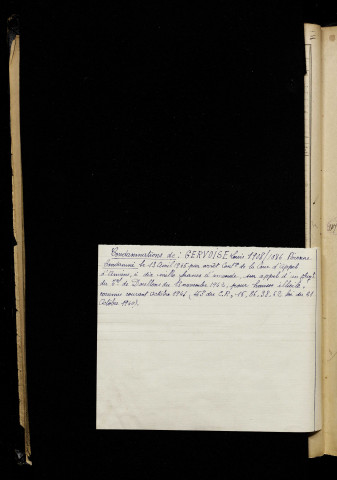 Condamnations de : GERVOISE Louis 1918/1086 Péronne.
Condamné le 13 Avril 1945 par arrêt Cont. de la Cour d'appel
d'Amiens, à dix mille francs d'amende, sur appel d'un jugt
du Tal de Doullens du novembre 1944, pour hausse illicite,
commis courant Octobre 1944, du C.P., 38, 52 du 21
Octobre 1940.